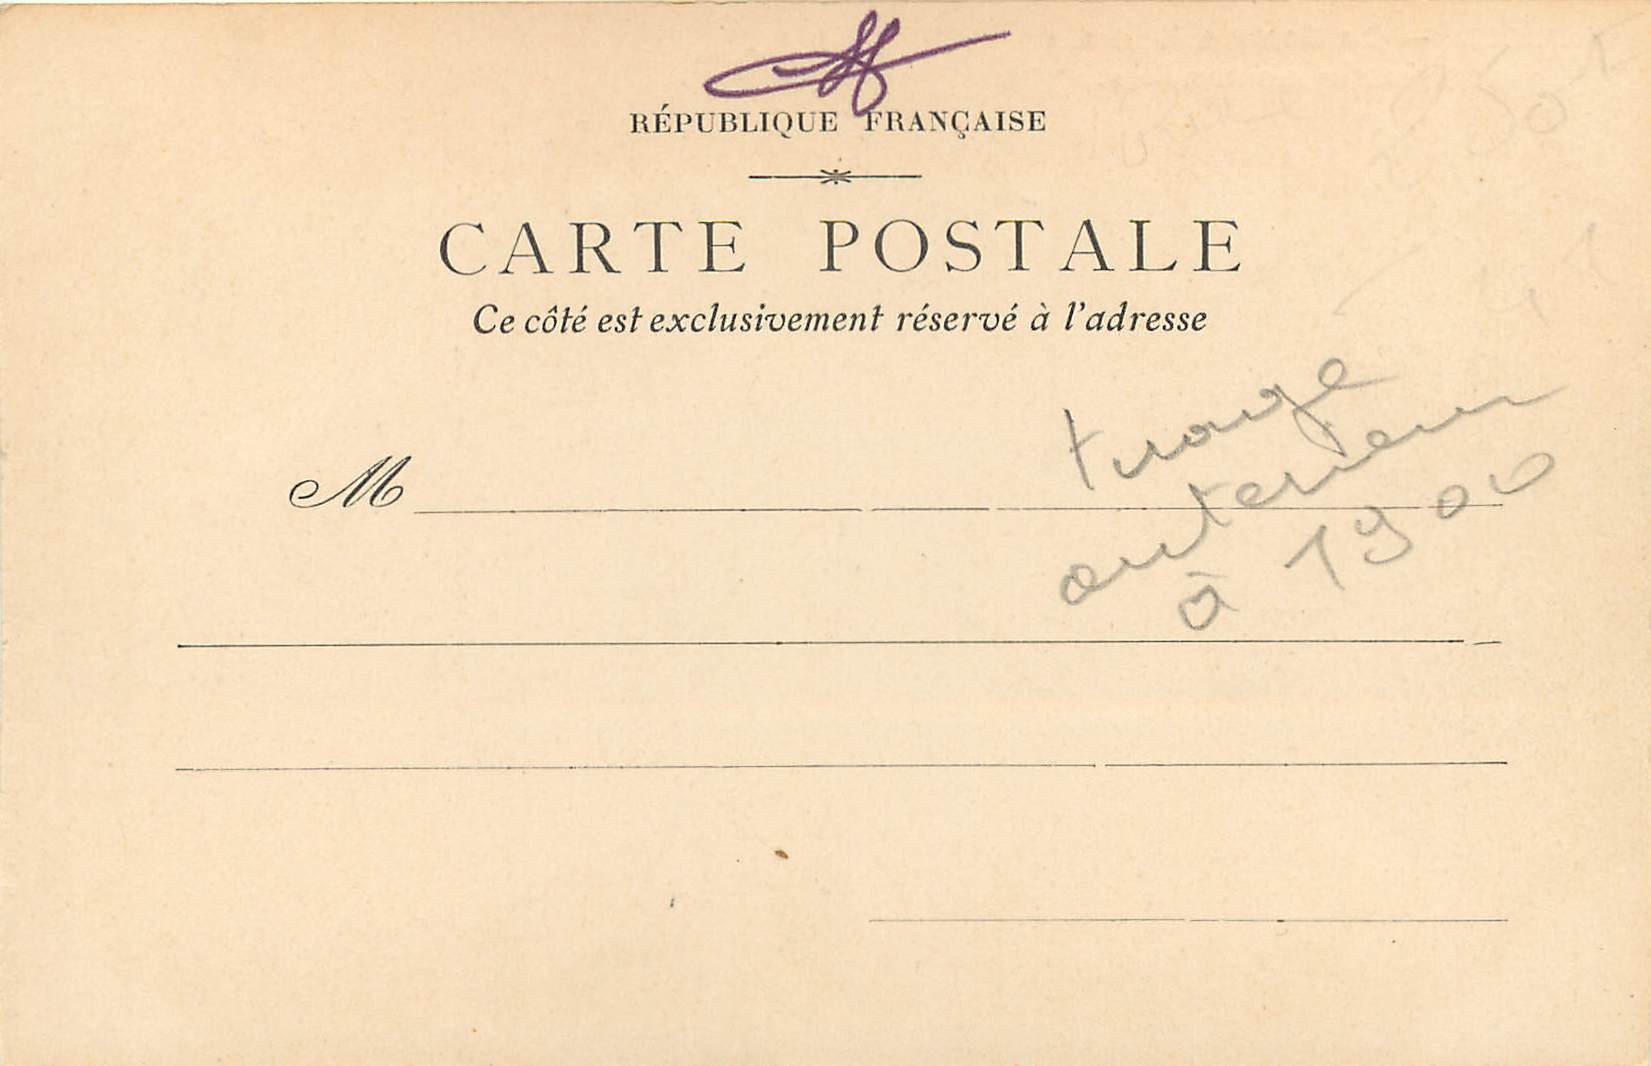 RÉPUBLIQUE FRANÇAISE
CARTE POSTALE
Ce côté est exclusivement réservé à l'adresse
M
tirage
anterieur
à 1900